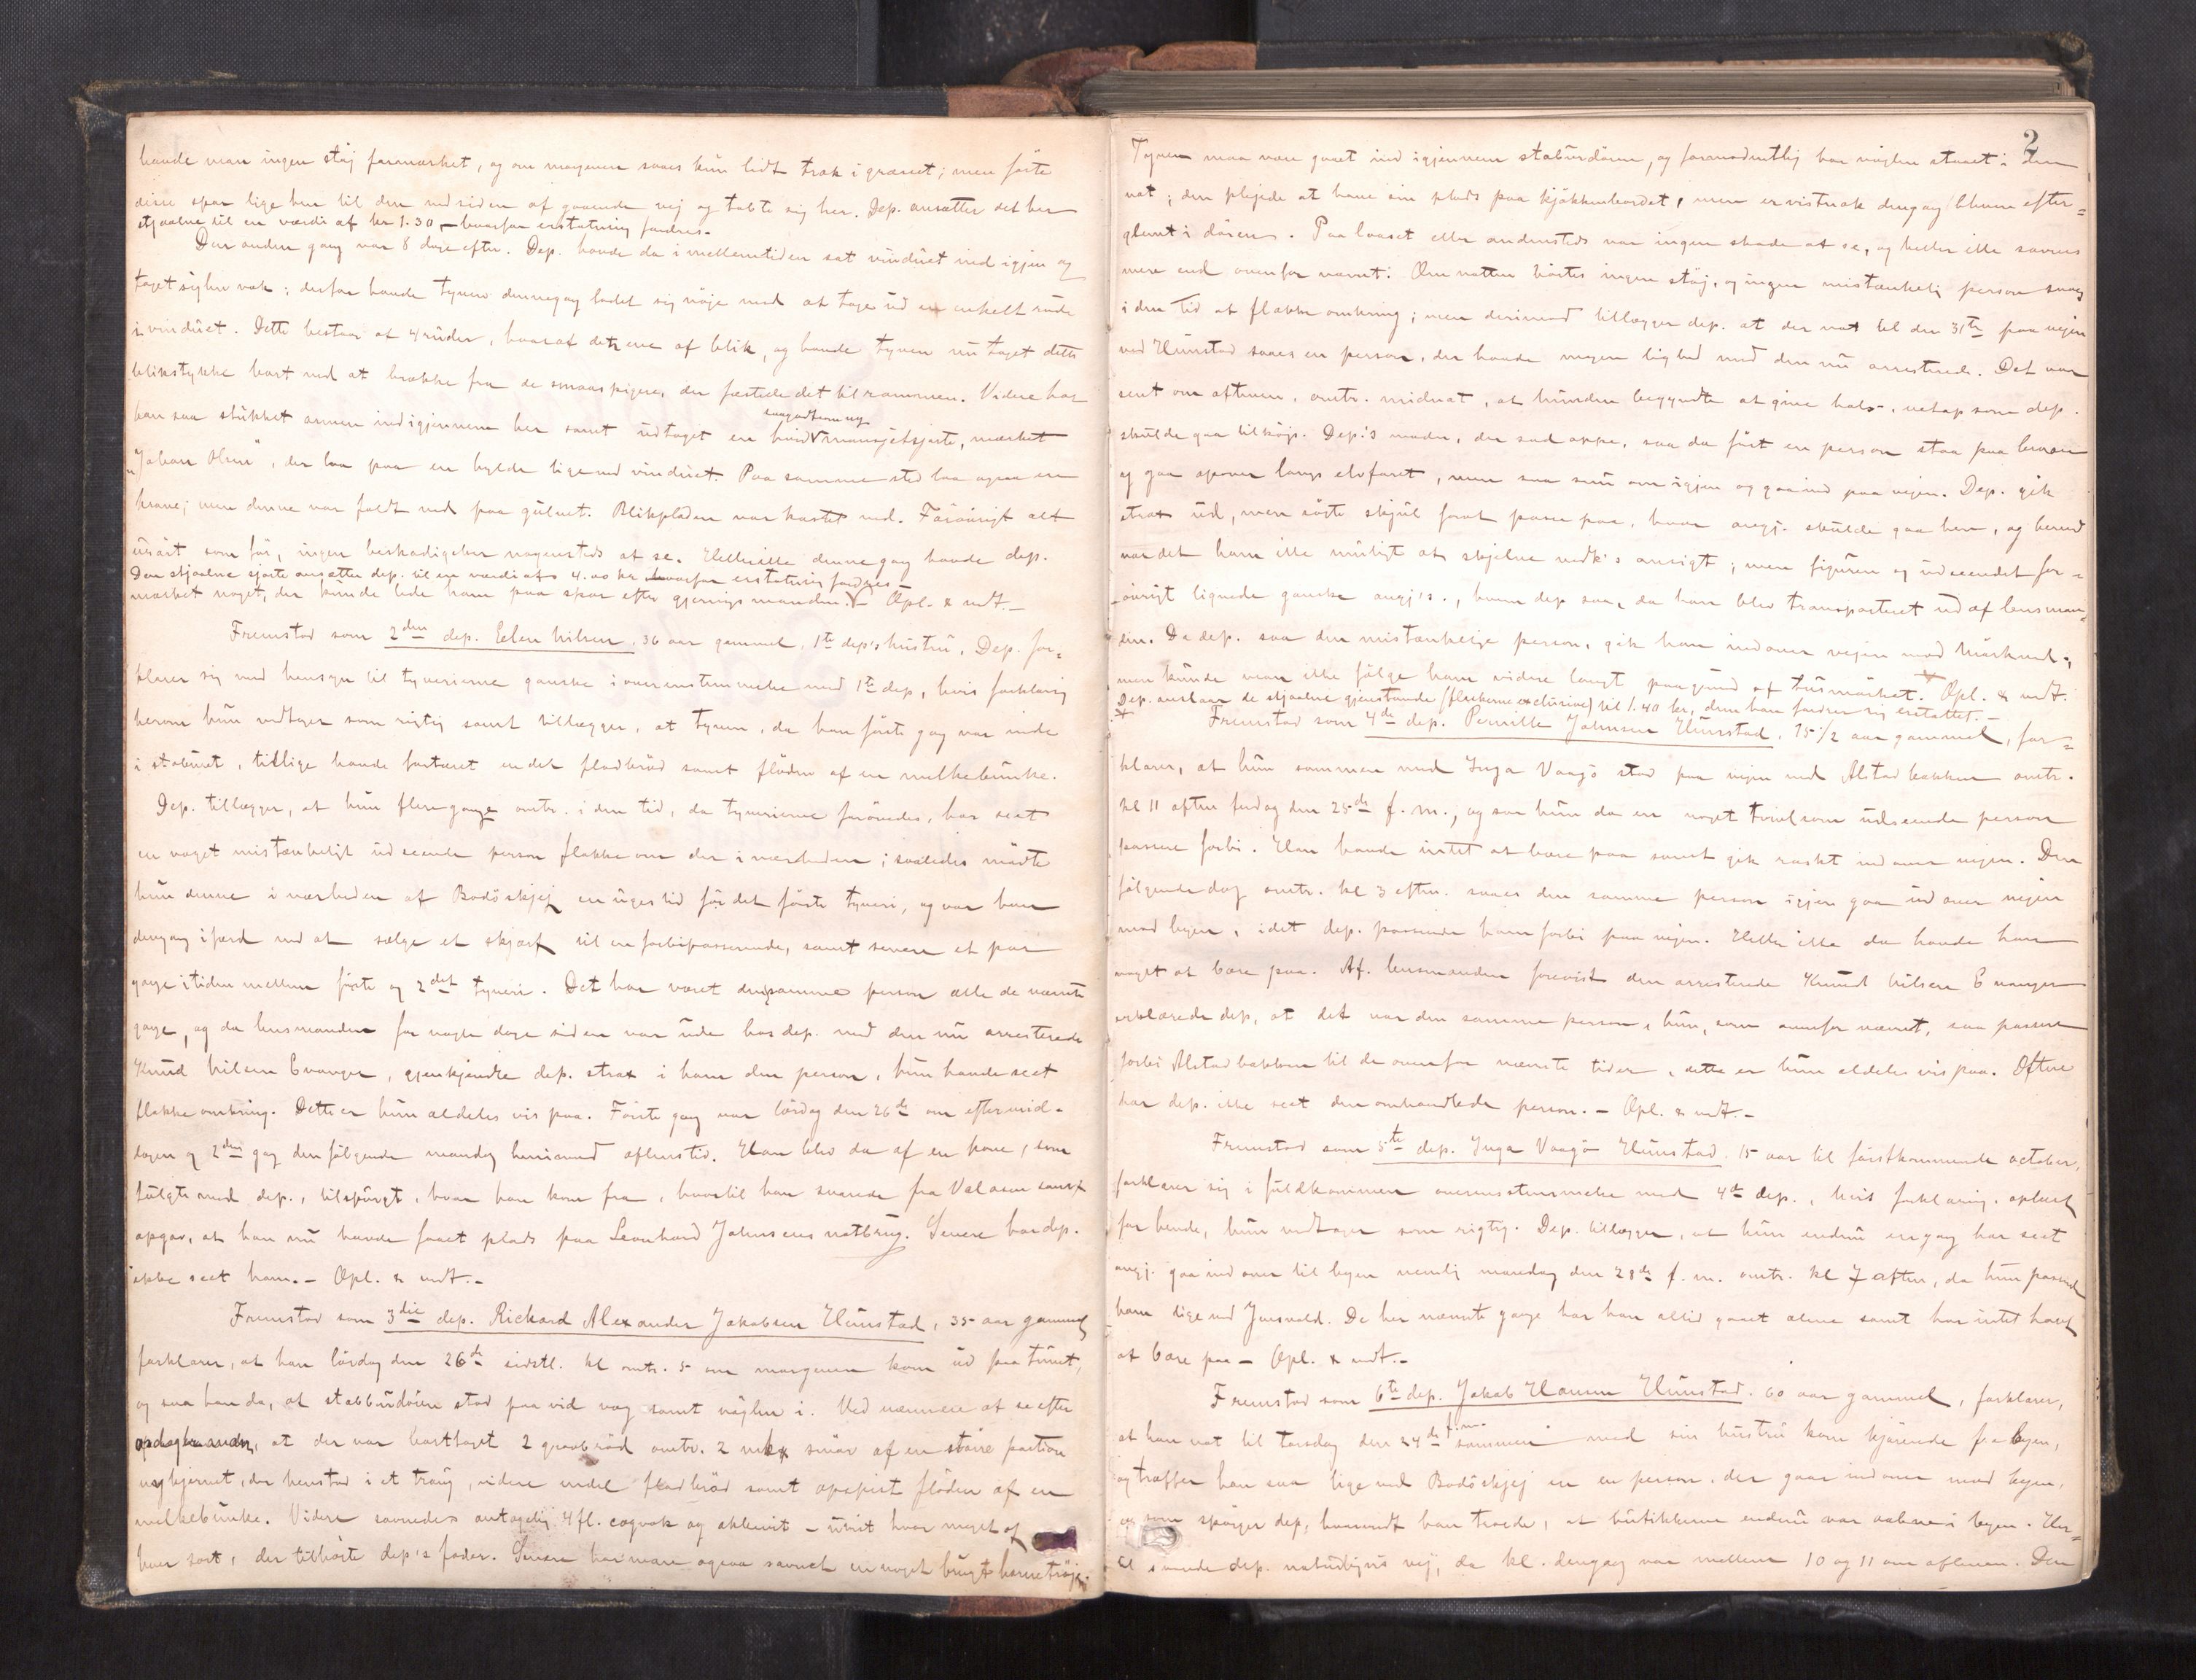 havde man ingen støj formærket, og om morgenen saaes kun lidt trak i græsset; men førte
disse spor lige hen til den ved siden af gaaende vej og tabte sig her. Dep. ansætter det her
stjaalne til en værdi af kr 1.30 – hvorfor erstatning fordres.
Den anden gang var 8 dage efter. Dep. havde da i mellemtiden sat vinduet ind igjen og
taget nøglen væk; derfor havde tyven dennegang ladet sig nøje med at tage ud en enkelt rude
i vinduet. Dette bestaar af 4 ruder, hvoraf det ene af blik, og havde tyven nu taget dette
blikstykke bort ved at brække fra de smaa spigere, der fæstede det til rammen. Videre har
han saa stukket armen ind igjennem her samt udtaget en hvid mansjetsjorte, mærket
saagodtsom ny
"Johan Olsen", der laa paa en hylde lige ved vinduet. Paa samme sted laa ogsaa en
krave; men denne var faldt ned paa gulvet. Blikpladen var kastet ned. Forøvrigt alt
urørt som før, ingen beskadigelser nogensteds at se. Heller ikke denne gang havde dep.
Den stjaalne sjorte ansætter dep. til en værdi af 4.00 kr hvorfor erstatning fordres
mærket noget, der kunde lede ham paa spor efter gjerningsmanden. Opl. & vedt. –
Fremstod som 2den dep. Elen Nilsen, 36 aar gammel, 1te dep's hustru. Dep. for=
klarer sig med hensyn til tyverierne ganske i overensstemmelse med 1te dep, hvis forklaring
herom hun vedtager som rigtig samt tillægger, at tyven, da han første gang var inde
i staburet, tillige havde fortæret en del fladbrød samt fløden af en melkebunke.
Dep. tillægger, at hun flere gange omtr. i den tid, da tyverierne forøvedes, har seet
en noget mistænkeligt udseende person flakke om der i nærheden; saaledes mødte
hun denne i nærheden af Bodøskjej en uges tid før det første tyveri, og var han
dengang ifærd med at sælge et skjærf til en forbipasserende, samt senere et par
gange i tiden mellem første og 2det tyveri. Det har været den samme person alle de nævnte
gange, og da lensmanden for nogle dage siden var ude hos dep. med den nu arresterede
Knud Nilsen Evanger, gjenkjendte dep. strax i ham den person, hun havde seet
flakke omkring. Dette er hun aldeles vis paa. Første gang var lørdag den 26de om eftermid-
dagen og 2den gang den følgende mandag henimod aftenstid. Han blev da af en kone, som
fulgte med dep., tilspurgt, hvor han kom fra, hvortil han svarede fra Valosen samt
opgav, at han nu havde faaet plads paa Leonhard Johnsens notbrug. Senere har dep.
ikke seet ham. – Opl. & vedt. –
Fremstod som 3die dep. Rickard Alexander Jakobsen Hunstad, 35 aar gammel,
forklarer, at han lørdag den 26de sidstl. kl omtr. 5 om morgenen kom ud paa tunet,
og saa han da, at stabbursdøren stod paa vid væg samt nøglen i. Ved nærmere at se efter
opdagede man, at der var borttaget 2 grovbrød omtr. 2 mk smør af en større portion
nykjernet, der henstod i et traug, videre endel fladbrød samt opspist fløden af en
melkebunke. Videre savnedes antagelig 4 fl. cognak og akkevit – uvist hvor meget af
hver sort, der tilhørte dep's fader. Senere har man ogsaa savnet en noget brugt herretrøje.
2
Tyven maa være gaaet ind igjennem stabursdøren, og formodentlig har nøglen staaet i den
nat; den plejede at have sin plads paa kjøkkenbordet, men er vistnok dengang bleven efter=
glemt i døren. Paa laaset eller andensteds var ingen skade at se, og heller ikke savnes
mere end ovenfor nævnt. Om natten hørtes ingen støj, og ingen mistænkelig person saaes
i den tid at flakke omkring; men derimod tillægger dep. at der nat til den 31te paa vejen
ved Hunstad saaes en person, der havde megen lighed med den nu arresterede. Det var
sent om aftenen, omtr. midnat, at hunden begyndte at give hals, netop som dep.
skulde gaa tilkøjs. Dep.'s moder, der sad oppe, saa da først en person staa paa broen
og gaa opover langs elvfaret, men saa snu om igjen og gaa ind paa vejen. Dep. gik
strax ud, men søgte skjul forat passe paa, hvor angj. skulde gaa hen, og herved
var det ham ikke muligt at skjelne vedk's ansigt; men figuren og udseendet for=
øvrigt lignede ganske angj's., hvem dep saa, da han blev transporteret ud af lensman=
den. Da dep. saa den mistænkelige person, gik han indover vejen mod Mørkved,
men kunde man ikke følge ham videre langt paagrund af tusmørket. Opl. & vedt.
Dep. anslaar de stjaalne gjenstande (flaskerne exclusive) til 1.40 kr, dem han fordrer sig erstattet. –
Fremstod som 4de dep. Pernille Johnsen Hunstad, 15 1/2 aar gammel, for=
klarer, at hun sammen med Inga Vaagø stod paa vejen ved Alstadbakken omtr.
kl 11 aften fredag den 25de f. m., og saa hun da en noget tvivlsom udseende person
passere forbi. Han havde intet at bære paa samt gik raskt indover vejen. Den
følgende dag omtr. kl 3 efterm. saaes den samme person igjen gaa ud over vejen
mod byen, idet dep. passerede ham forbi paa vejen. Heller ikke da havde han
noget at bære paa. Af lensmanden forevist den arresterede Knud Nilsen Evanger
erklærede dep, at det var den samme person, hun, som ovenfor nævnt, saa passere
forbi Alstadbakken til de ovenfor nævnte tider, dette er hun aldeles vis paa. Oftere
har dep. ikke seet den omhandlede person. – Opl. & vedt. –
Fremstod som 5te dep. Inga Vaagø Hunstad, 15 aar til førstkommende october,
forklarer sig i fuldkommen overensstemmelse med 4de dep., hvis forklaring, oplæst
for hende, hun vedtager som rigtig. Dep. tillægger, at hun endnu engang har seet
angj. gaa indover til byen nemlig mandag den 28de f. m. omtr. kl 7 aften, da hun passerede
ham lige ved Jensvold. De her nævnte gange har han altid gaaet alene samt har intet havt
at bære paa – Opl. & vedt. –
Fremstod som 6te dep. Jakob Hansen Hunstad, 60 aar gammel, forklarer,
at han nat til torsdag den 24de f. m. sammen med sin hustru kom kjørende fra byen,
og træffer han saa lige ved Bodøskjej en person, der gaar indover mod byen,
og som spørger dep, hvorvidt han troede, at butikkerne endnu var aabne i byen. Her=
til svarede dep. naturligvis nej, da kl. dengang var mellem 10 og 11 om aftenen. Den